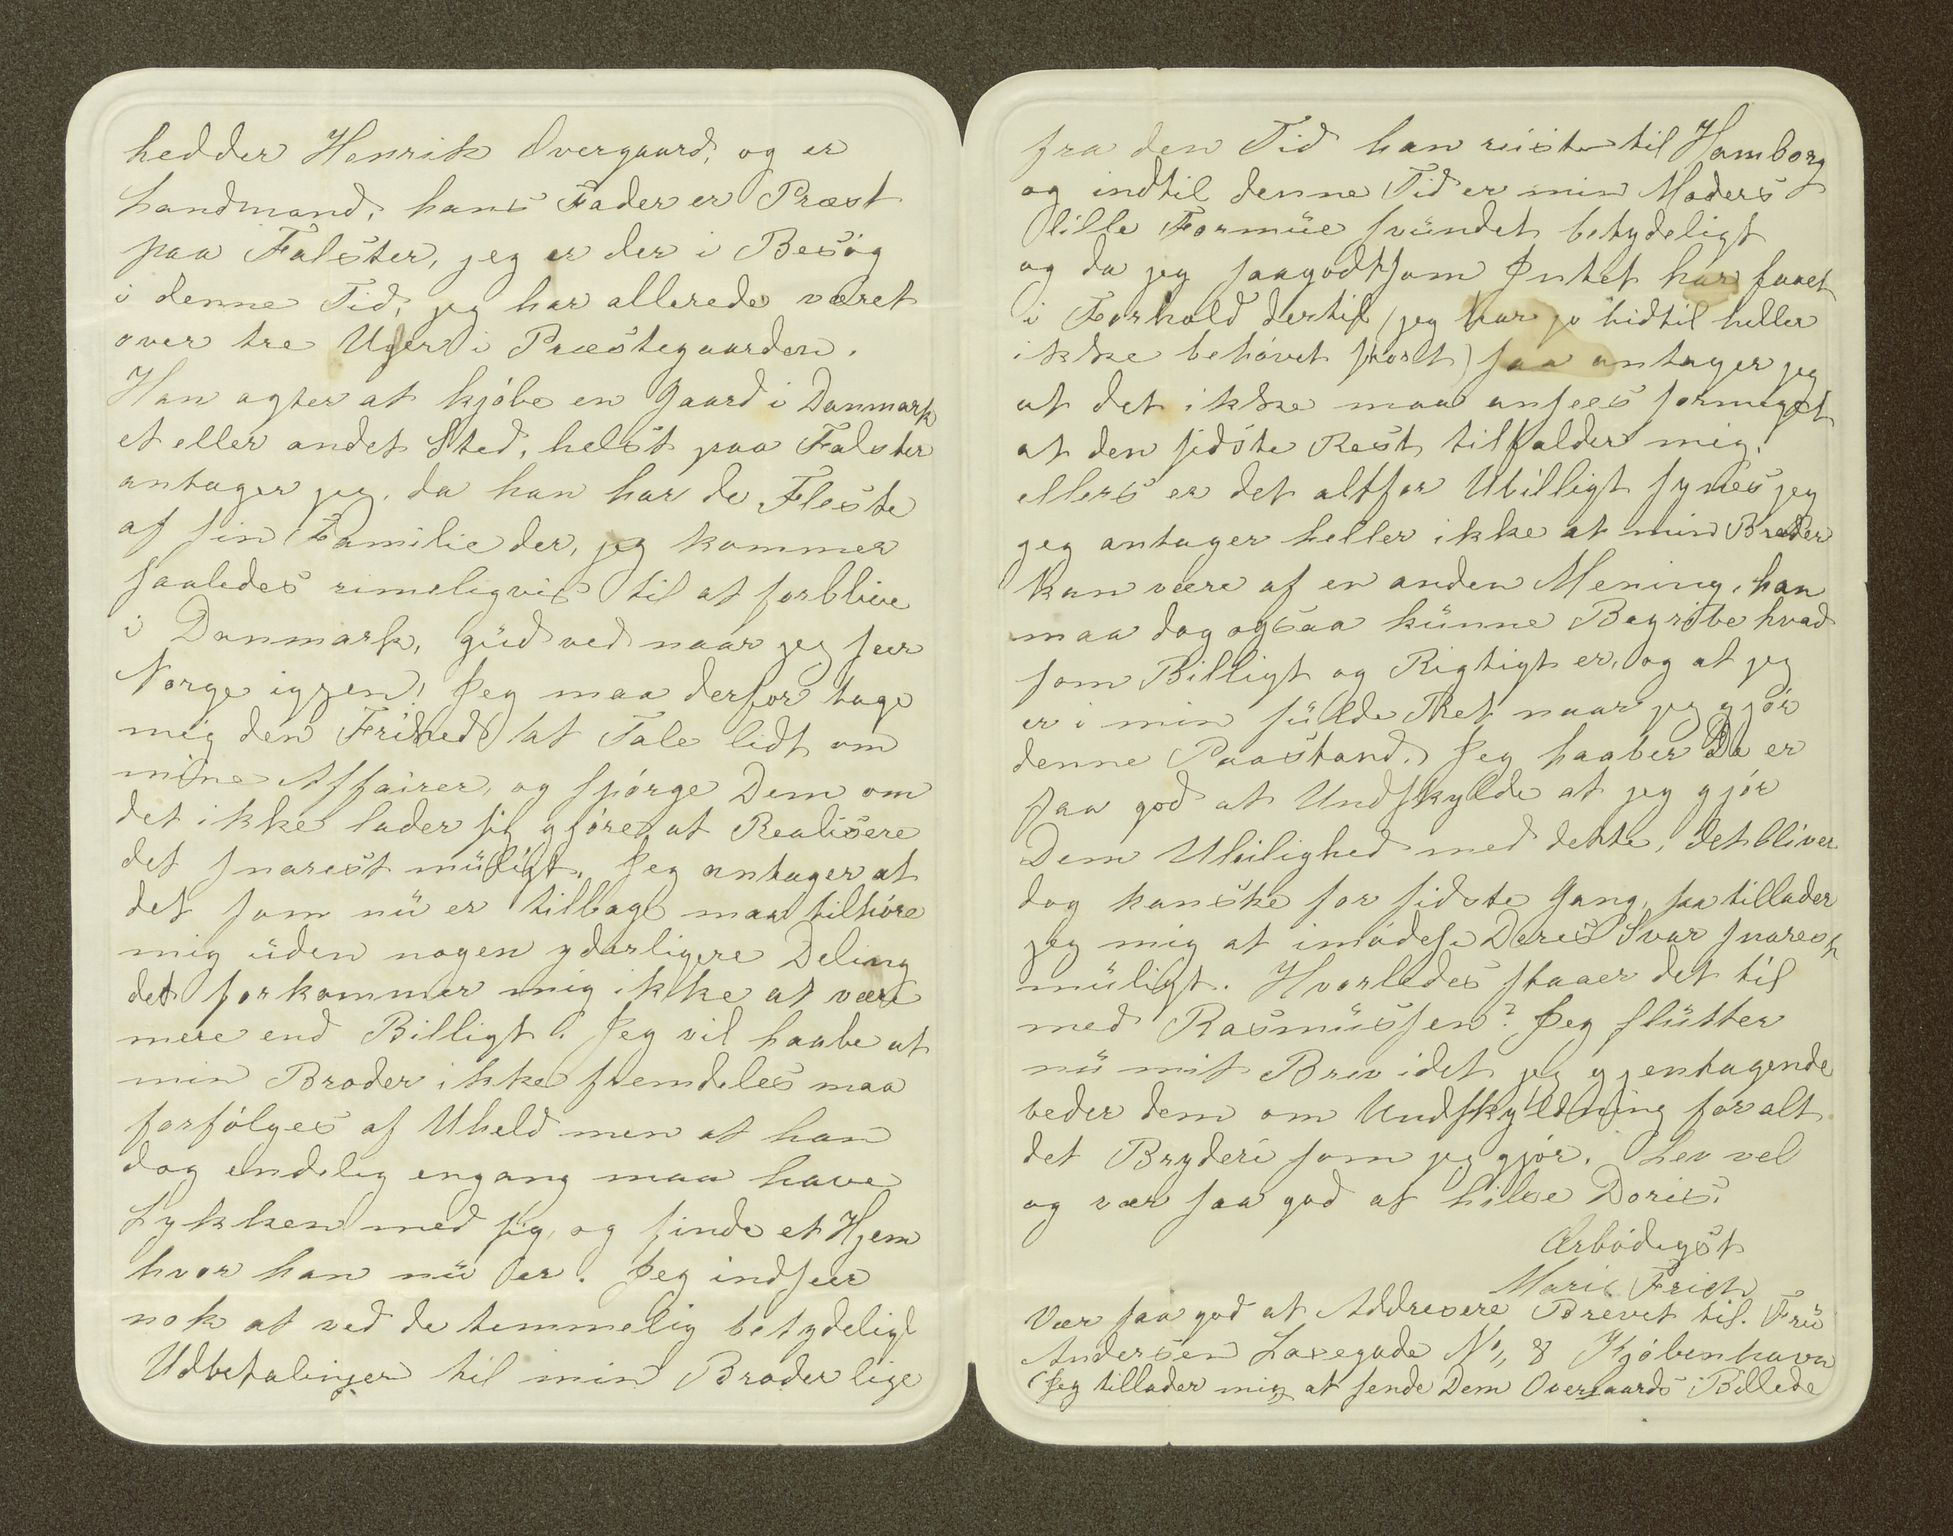 hedder Henrik Overgaard, og er
Landmand, hans Fader er Præst
paa Falster, jeg er der i Besøg
i denne Tid, jeg har allerede været
over tre Uger i Præstegaarden.
Han agter at kjøbe en Gaard i Danmark
et eller andet Sted, helst paa Falster
antager jeg, da han har de Fleste
af sin Familie der, jeg kommer
saaledes rimeligvis til at forblive
i Danmark, güd ved naar jeg seer
Norge igjen! Jeg maa derfor tage
mig den Frihed at Tale lidt om
mine Affairer, og spørge Dem om
det ikke lader sig gjøre, at Realisere
det snarest müligt. Jeg antager at
det som nü er tilbage maa tilhøre
mig üden nogen yderligere Deling
det forkommer mig ikke at være
mere end Billigt. Jeg vil haabe at
min Broder ikke fremdeles maa
forfølges af Uheld men at han
dog endelig engang maa have
Lykken med sig, og finde et Hjem
hvor han nü er. Jeg indseer
nok at ved de temmelig betydelige
Udbetalinger til min Broder lige
fra den Tid han reiste til Hamborg
og indtil denne Tid er min Moders
lille Formüe svündet betydeligt
og da jeg saagodtsom Intet har faaet
i Forhold dertil (jeg har jo hidtil heller
ikke behøvet stort) saa antager jeg
at det ikke maa ansees formeget
at den sidste Rest tilfalder mig,
ellers er det altfor Ubilligt synes jeg
jeg antager heller ikke at min Broder
kan være af en anden Mening, han
maa dog ogsaa künne Begribe hvad
som Billigt og Rigtigt er, og at jeg
er i min fülde Ret naar jeg gjør
denne Paastand. Jeg haaber De er
saa god at Undskylde at jeg gjør
Dem Uleilighed med dette, det bliver
dog kanske for sidste Gang, saa tillader
jeg mig at imødese Deres Svar snarest
müligt. Hvorledes staaer det til
med Rasmüssen? Jeg slütter
nü mit Brev idet jeg gjentagende
beder dem om Undskyldning for alt
det Bryderi som jeg gjør. Lev vel
og vær saa god at hilse Doris.
Ærbødigst
Marie Frich
Vær saa god at Addresere Brevet til. Frü
Andersen Laxegade No, 8 Kjøbenhavn
(Jeg tillader mig at sende Dem Overgaards Billede